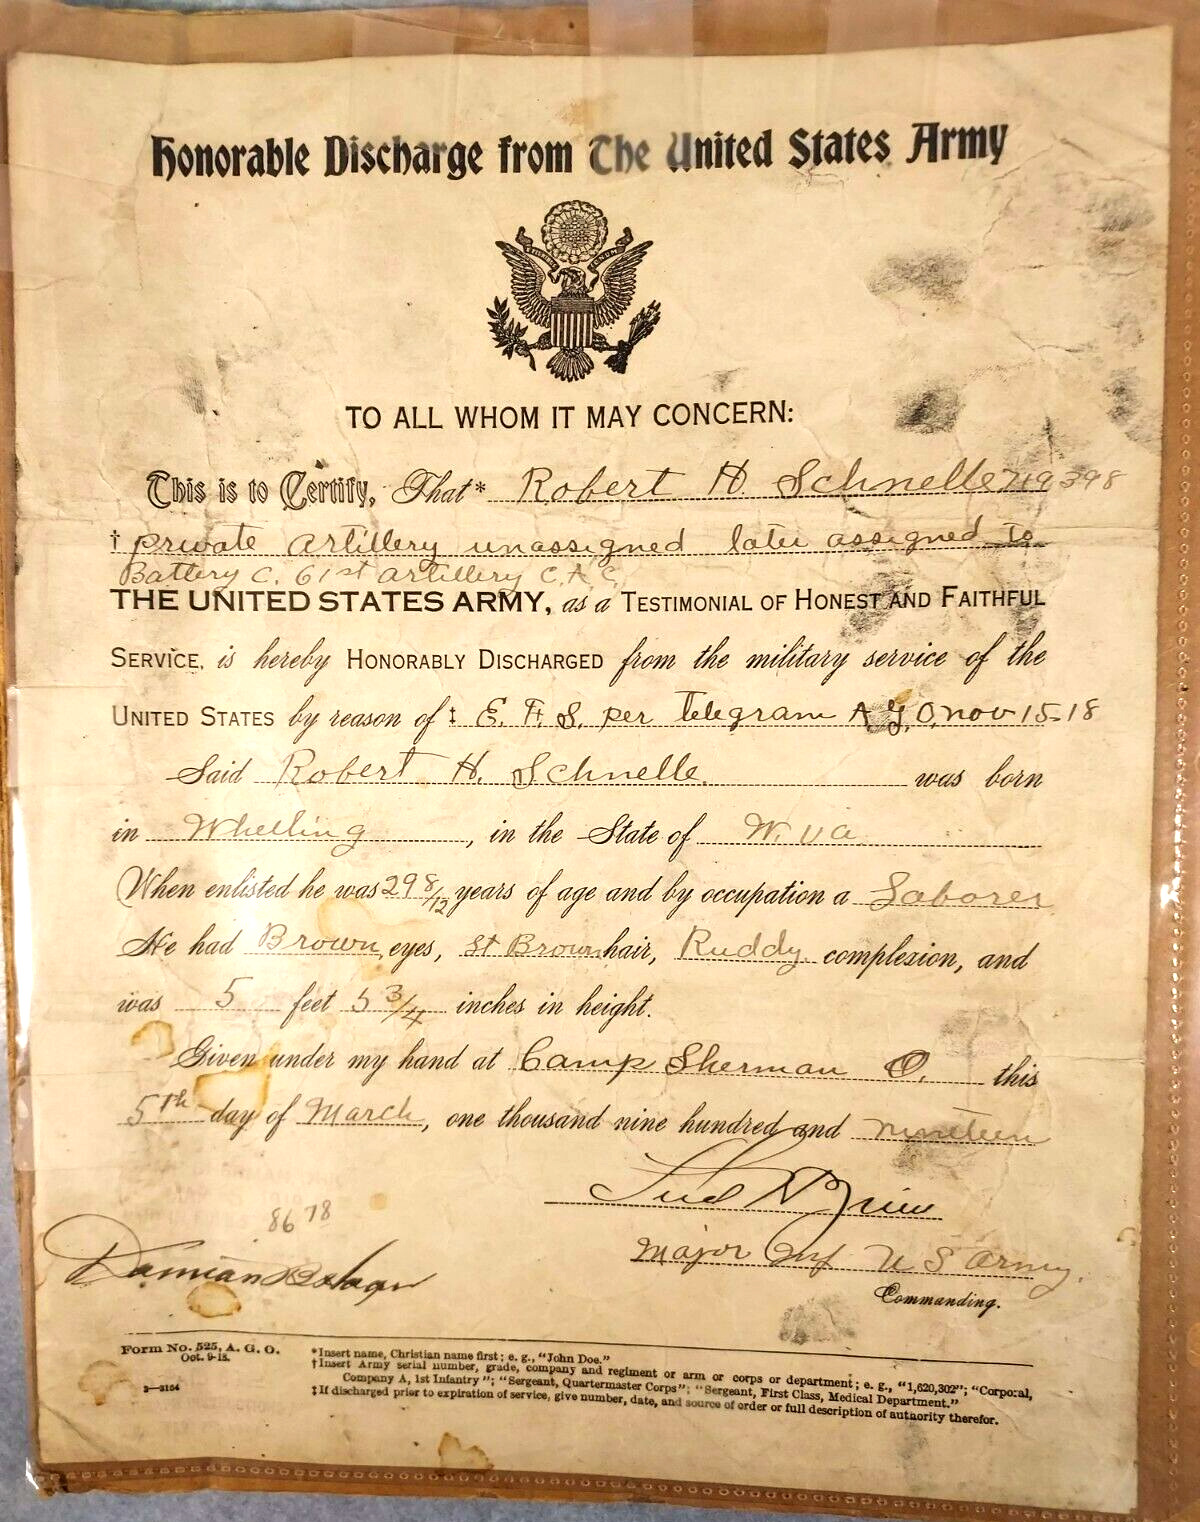 Honorable Discharge from The United States Army
TO ALL WHOM IT MAY CONCERN:
This is to Certify, That* Robert H. Schnelle 719398
† private artillery unassigned later assigned to
Battery C. 61st artillery C.A.C.
THE UNITED STATES ARMY, as a TESTIMONIAL OF HONEST AND FAITHFUL
SERVICE, is hereby HONORABLY DISCHARGED from the military service of the
UNITED STATES by reason of ‡ E. F. S. per telegram A.G.O. nov 15-18
Said Robert H. Schnelle. was born
in Whelling, in the State of W. Va
When enlisted he was 29 8/12 years of age and by occupation a Laborer
He had Brown eyes, Brown hair, Ruddy complexion, and
was 5 feet 5 3/4 inches in height.
Given under my hand at Camp Sherman O. this
5th day of March, one thousand nine hundred and nineteen
8678
Major Inf U S Army.
Damian
Commanding.
Form No. 525, A. G. O.
Oct. 9-18.
3—3164
*Insert name, Christian name first; e. g., "John Doe."
†Insert Army serial number, grade, company and regiment or arm or corps or department; e. g., "1,620,302"; "Corporal,
Company A, 1st Infantry"; "Sergeant, Quartermaster Corps"; "Sergeant, First Class, Medical Department."
‡If discharged prior to expiration of service, give number, date, and source of order or full description of authority therefor.